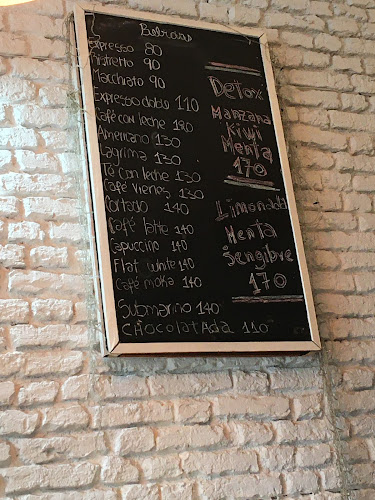 Bebidas
Espresso 80
Ristretto 90
Macchiato 90
Expresso doblo 110
Café con leche 130
Americano 130
Lagrima 130
Té con leche 130
Café Vienes 130
Cortado 140
Café latte 140
Capuccino 140
Flat white 140
Café moka 140
Submarino 140
CHocolatAda 110
Detox
Manzana
Kiwi
Menta
170
Limonada
Menta
Sengibre
170